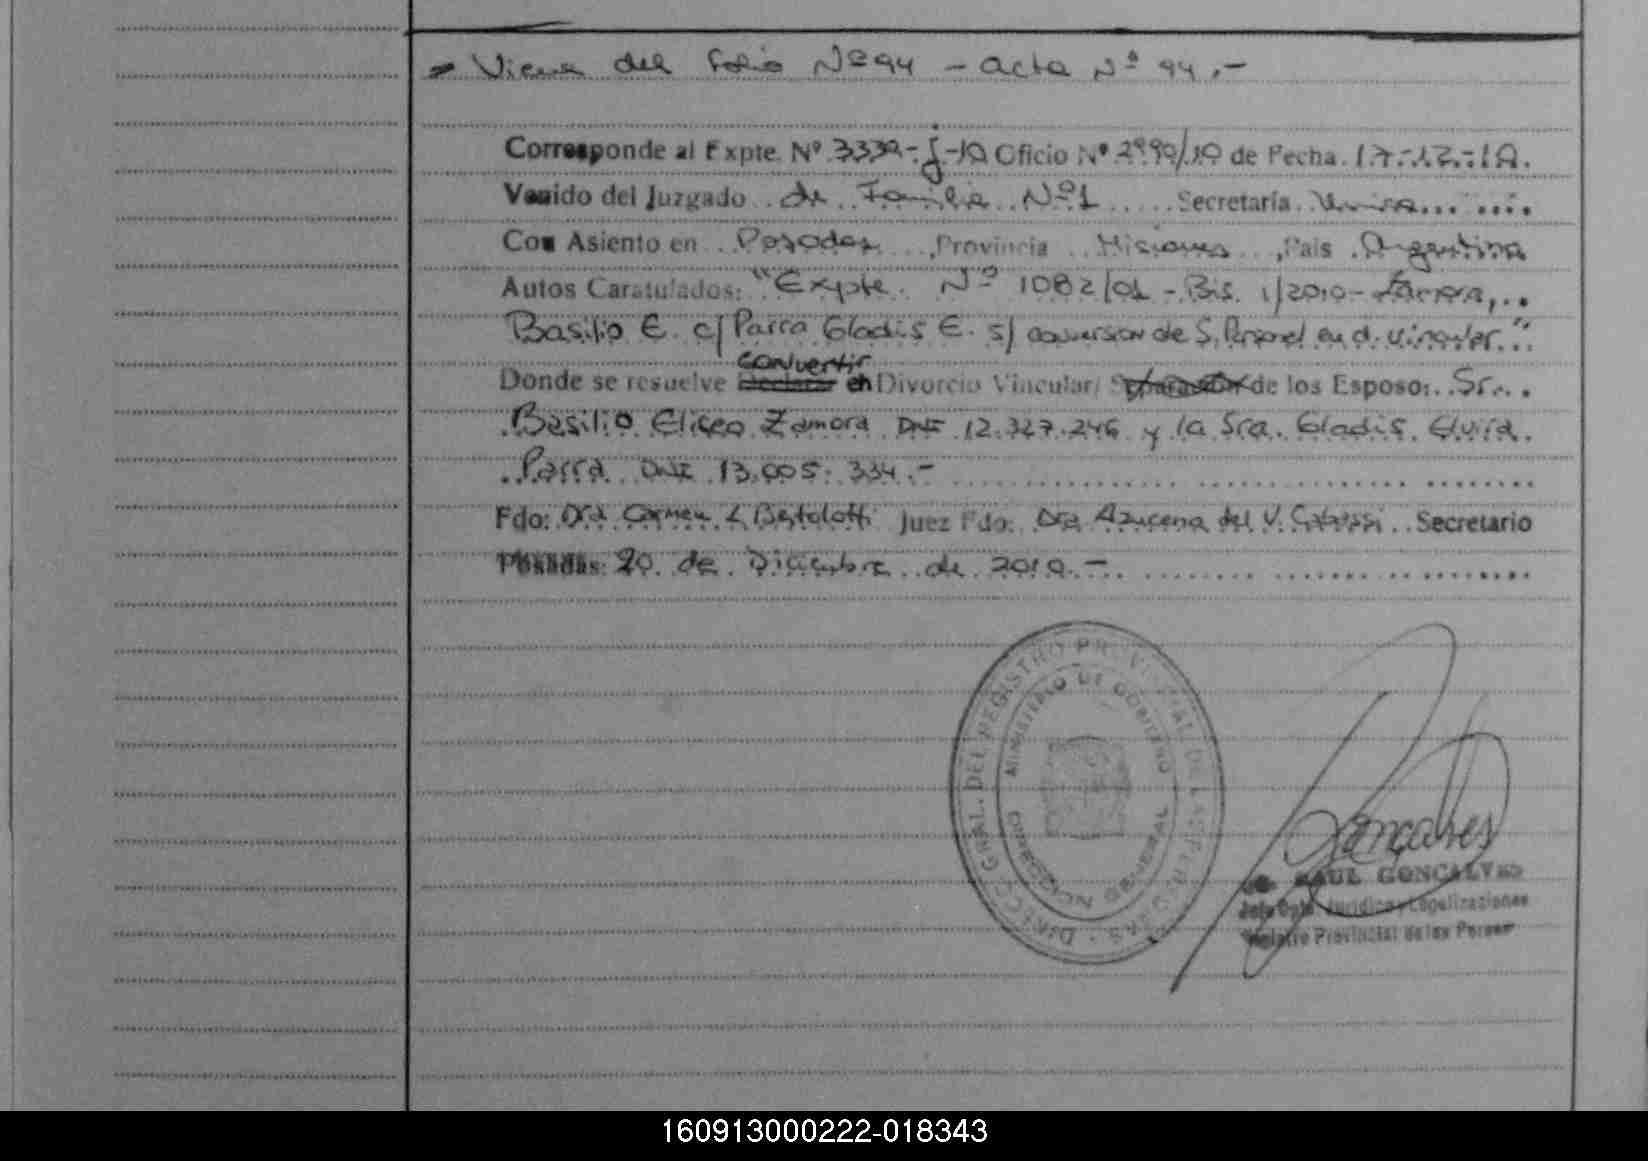 Viene del folio Nº 94 - acta Nº 94.-
Corresponde al Expte. Nº 3332-J-10 Oficio Nº 2990/10 de Fecha 17-12-10.
Venido del Juzgado de Familia Nº 1 Secretaría Única
Con Asiento en Posadas, Provincia Misiones, País Argentina
Autos Caratulados: "Expte. Nº 1082/01 - Bis. 1/2010 - Zamora,
Basilio E. c/ Parra Gladis E. s/ conversion de S. Personal en d. vincular."
convertir
Donde se resuelve Declarar en Divorcio Vincular/ Separación de los Esposo: Sr.
Basilio Eliseo Zamora DNI 12.327.246 y la Sra. Gladis Elvira
Parra DNI 13.005.334.-
Fdo: Dra Carmen L Bertolotti Juez Fdo: Dra Azucena del V. Secretario
Posadas: 20 de Diciembre de 2010.-
DIRECC. GRAL. DEL REGISTRO PROVINCIAL DE LAS PERSONAS
MINISTERIO DE GOBIERNO
DIRECCION GENERAL
Goncalves
RAUL GONCALVES
Jefe Dpto. Jurídico y Legalizaciones
Registro Provincial de las Person
160913000222-018343